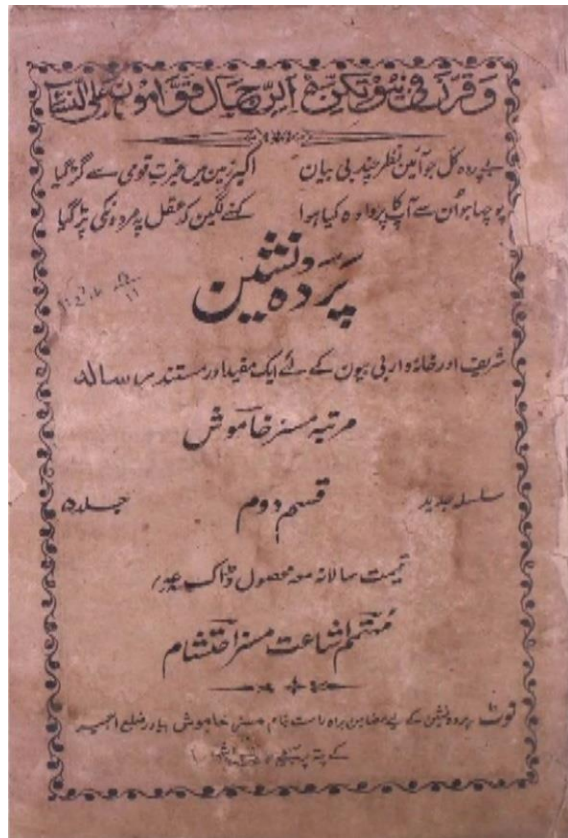 وَقَرْنَ فِیْ بُیُوْتِکُنَّ اَلرِّجَالُ قَوَّامُوْنَ عَلَی النِّسَاءِ
بے پردہ کل جو آئین نظر چند بی بیان
اکبر زمین میں غیرت قومی سے گڑ گیا
پوچھا جو اُن سے آپ کا پردا وہ کیا ہوا
کہنے لگین کہ عقل پہ مردونکی پڑ گیا
پَردہ نشین
شریف اور خانہ دار بی بیون کے لئے ایک مفید اور مستند رسالہ
مرتبہ مسز خاموش
سلسلہ جدید
قسم دوم
جلد ۵
قیمت سالانہ معہ محصول ڈاک
مُہتمم اشاعت مسز احتشام
نوٹ پردہ نشین کے لیے مضامین براہ راست بنام مسز خاموش بیاور ضلع اجمیر
کے پتہ پر